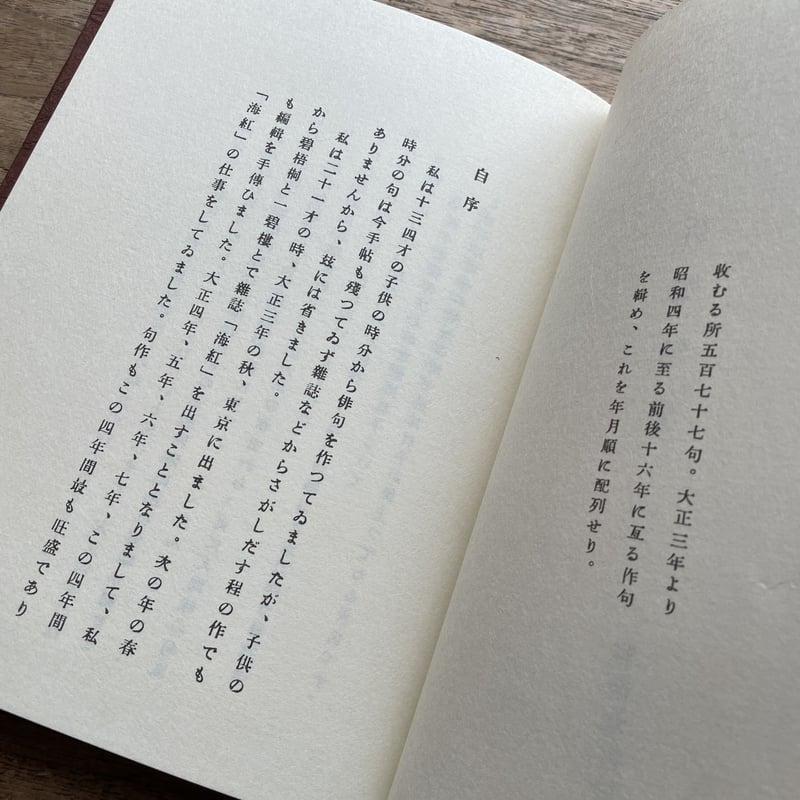 收むる所五百七十七句。大正三年より
昭和四年に至る前後十六年に亙る作句
を輯め、これを年月順に配列せり。
自序
私は十三四才の子供の時分から俳句を作つてゐましたが、子供の
時分の句は今手帖も殘つてゐず雜誌などからさがしだす程の作でも
ありませんから、玆には省きました。
私は二十一才の時、大正三年の秋、東京に出ました。次の年の春
から碧梧桐と一碧樓とで雜誌「海紅」を出すこととなりまして、私
も編輯を手傳ひました。大正四年、五年、六年、七年、この四年間
「海紅」の仕事をしてゐました。句作もこの四年間最も旺盛であり